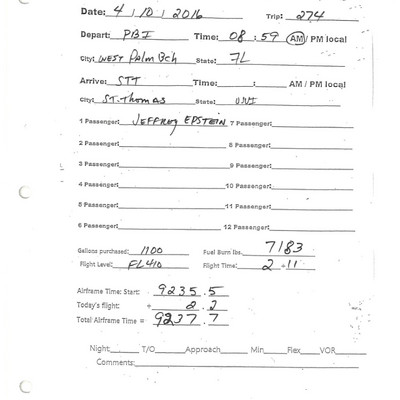 Date: 4 / 10 / 2016 Trip: 274
Depart: PBI Time: 08 : 59 AM / PM local
City: WEST Palm Bch State: FL
Arrive: STT Time: : AM / PM local
City: ST. Thomas State: USVI
1 Passenger: JEFFREY EPSTEIN 7 Passenger:
2 Passenger: 8 Passenger:
3 Passenger: 9 Passenger:
4 Passenger: 10 Passenger:
5 Passenger: 11 Passenger:
6 Passenger: 12 Passenger:
Gallons purchased: 1100 Fuel Burn lbs. 7183
Flight Level: FL410 Flight Time: 2 + 11
Airframe Time: Start: 9235.5
Today's flight: + 2.2
Total Airframe Time = 9237.7
Night: T/O Approach Min Flex VOR
Comments: